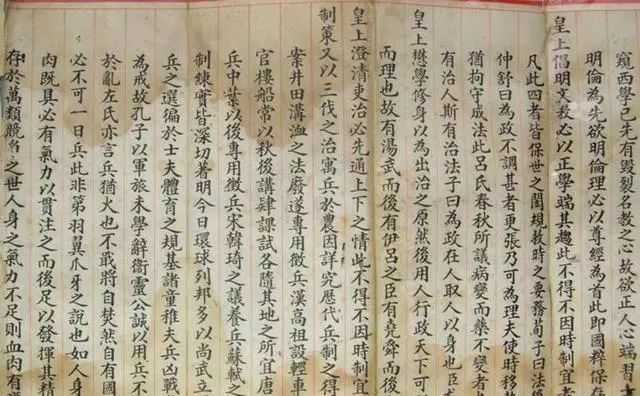 窺西學已先有毀裂名教之心故欲正人心端習士
明倫為先欲明倫理必以尊經為首此即國粹保存
皇上倡明文教必以正學端其趨此不得不因時制宜者
凡此四者皆保世之閎規救時之要務荀子曰法後
仲舒曰為政不調甚者更張乃可為理夫使時移
猶拘守成法此呂氏春秋所譏病變而藥不變者
有治人斯有治法子曰為政在人取人以身也臣
皇上懋學修身以為出治之原然後用人行政天下可
而理也故有湯武而後有伊呂之臣有堯舜而後
皇上澄清吏治必先通上下之情此不得不因時制宜
制策又以三代之治寓兵於農因詳究歷代兵制之得
案井田溝洫之法廢遂專用徵兵漢高祖設輕車
官樓船常以秋後講肄課試各隨其地之所宜唐
兵中葉以後專用徵兵宋韓琦之議養兵蘇軾之
制練實皆深切著明今日環球列邦多以尚武立
兵之選徧於士夫體育之規基諸童稚夫兵凶戰
為戒故孔子以軍旅未學辭衛靈公誠以用兵不
於亂左氏亦言兵猶火也不戢將自焚然自有國
必不可一日弛兵此非第羽翼爪牙之說也如人身
肉既具必有氣力以貫注之而後足以發揮其精
存於萬類競名之世人身之氣力不足則血肉有